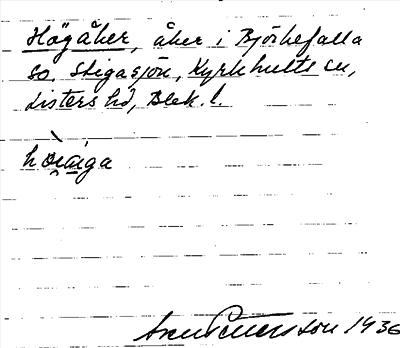 Högåker, åker i Björkefalla
so. Stigasjön, Kyrkhults sn,
Listers hd, Blek. l.
Sven Petersson 1936